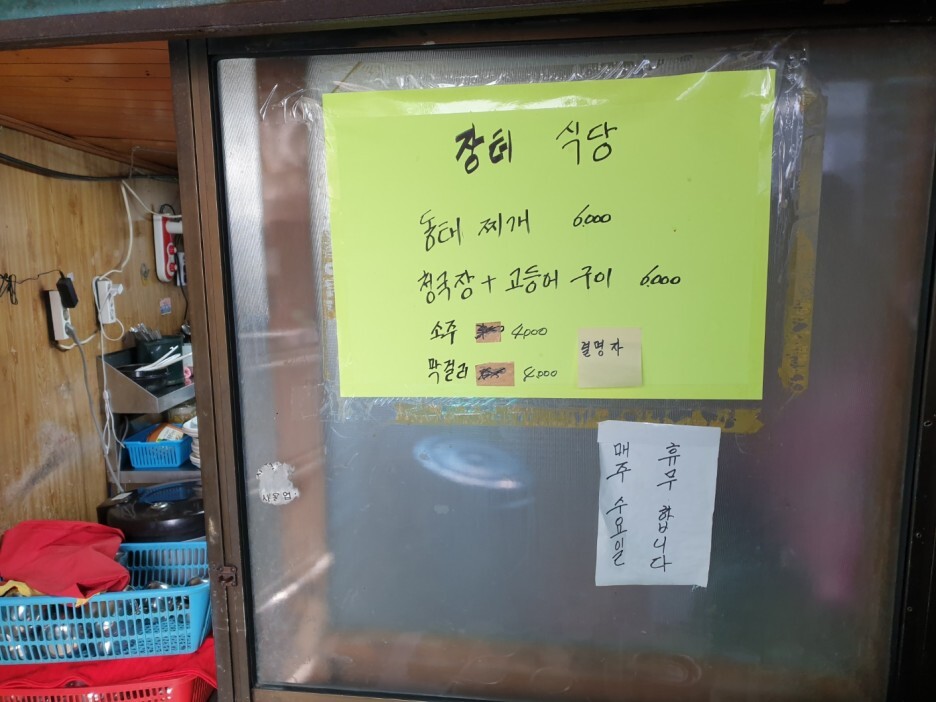 장터 식당
동태 찌개 6.000
청국장 + 고등어 구이 6.000
소주 4,000
막걸리 4,000
결명자
매주 수요일
휴무 합니다